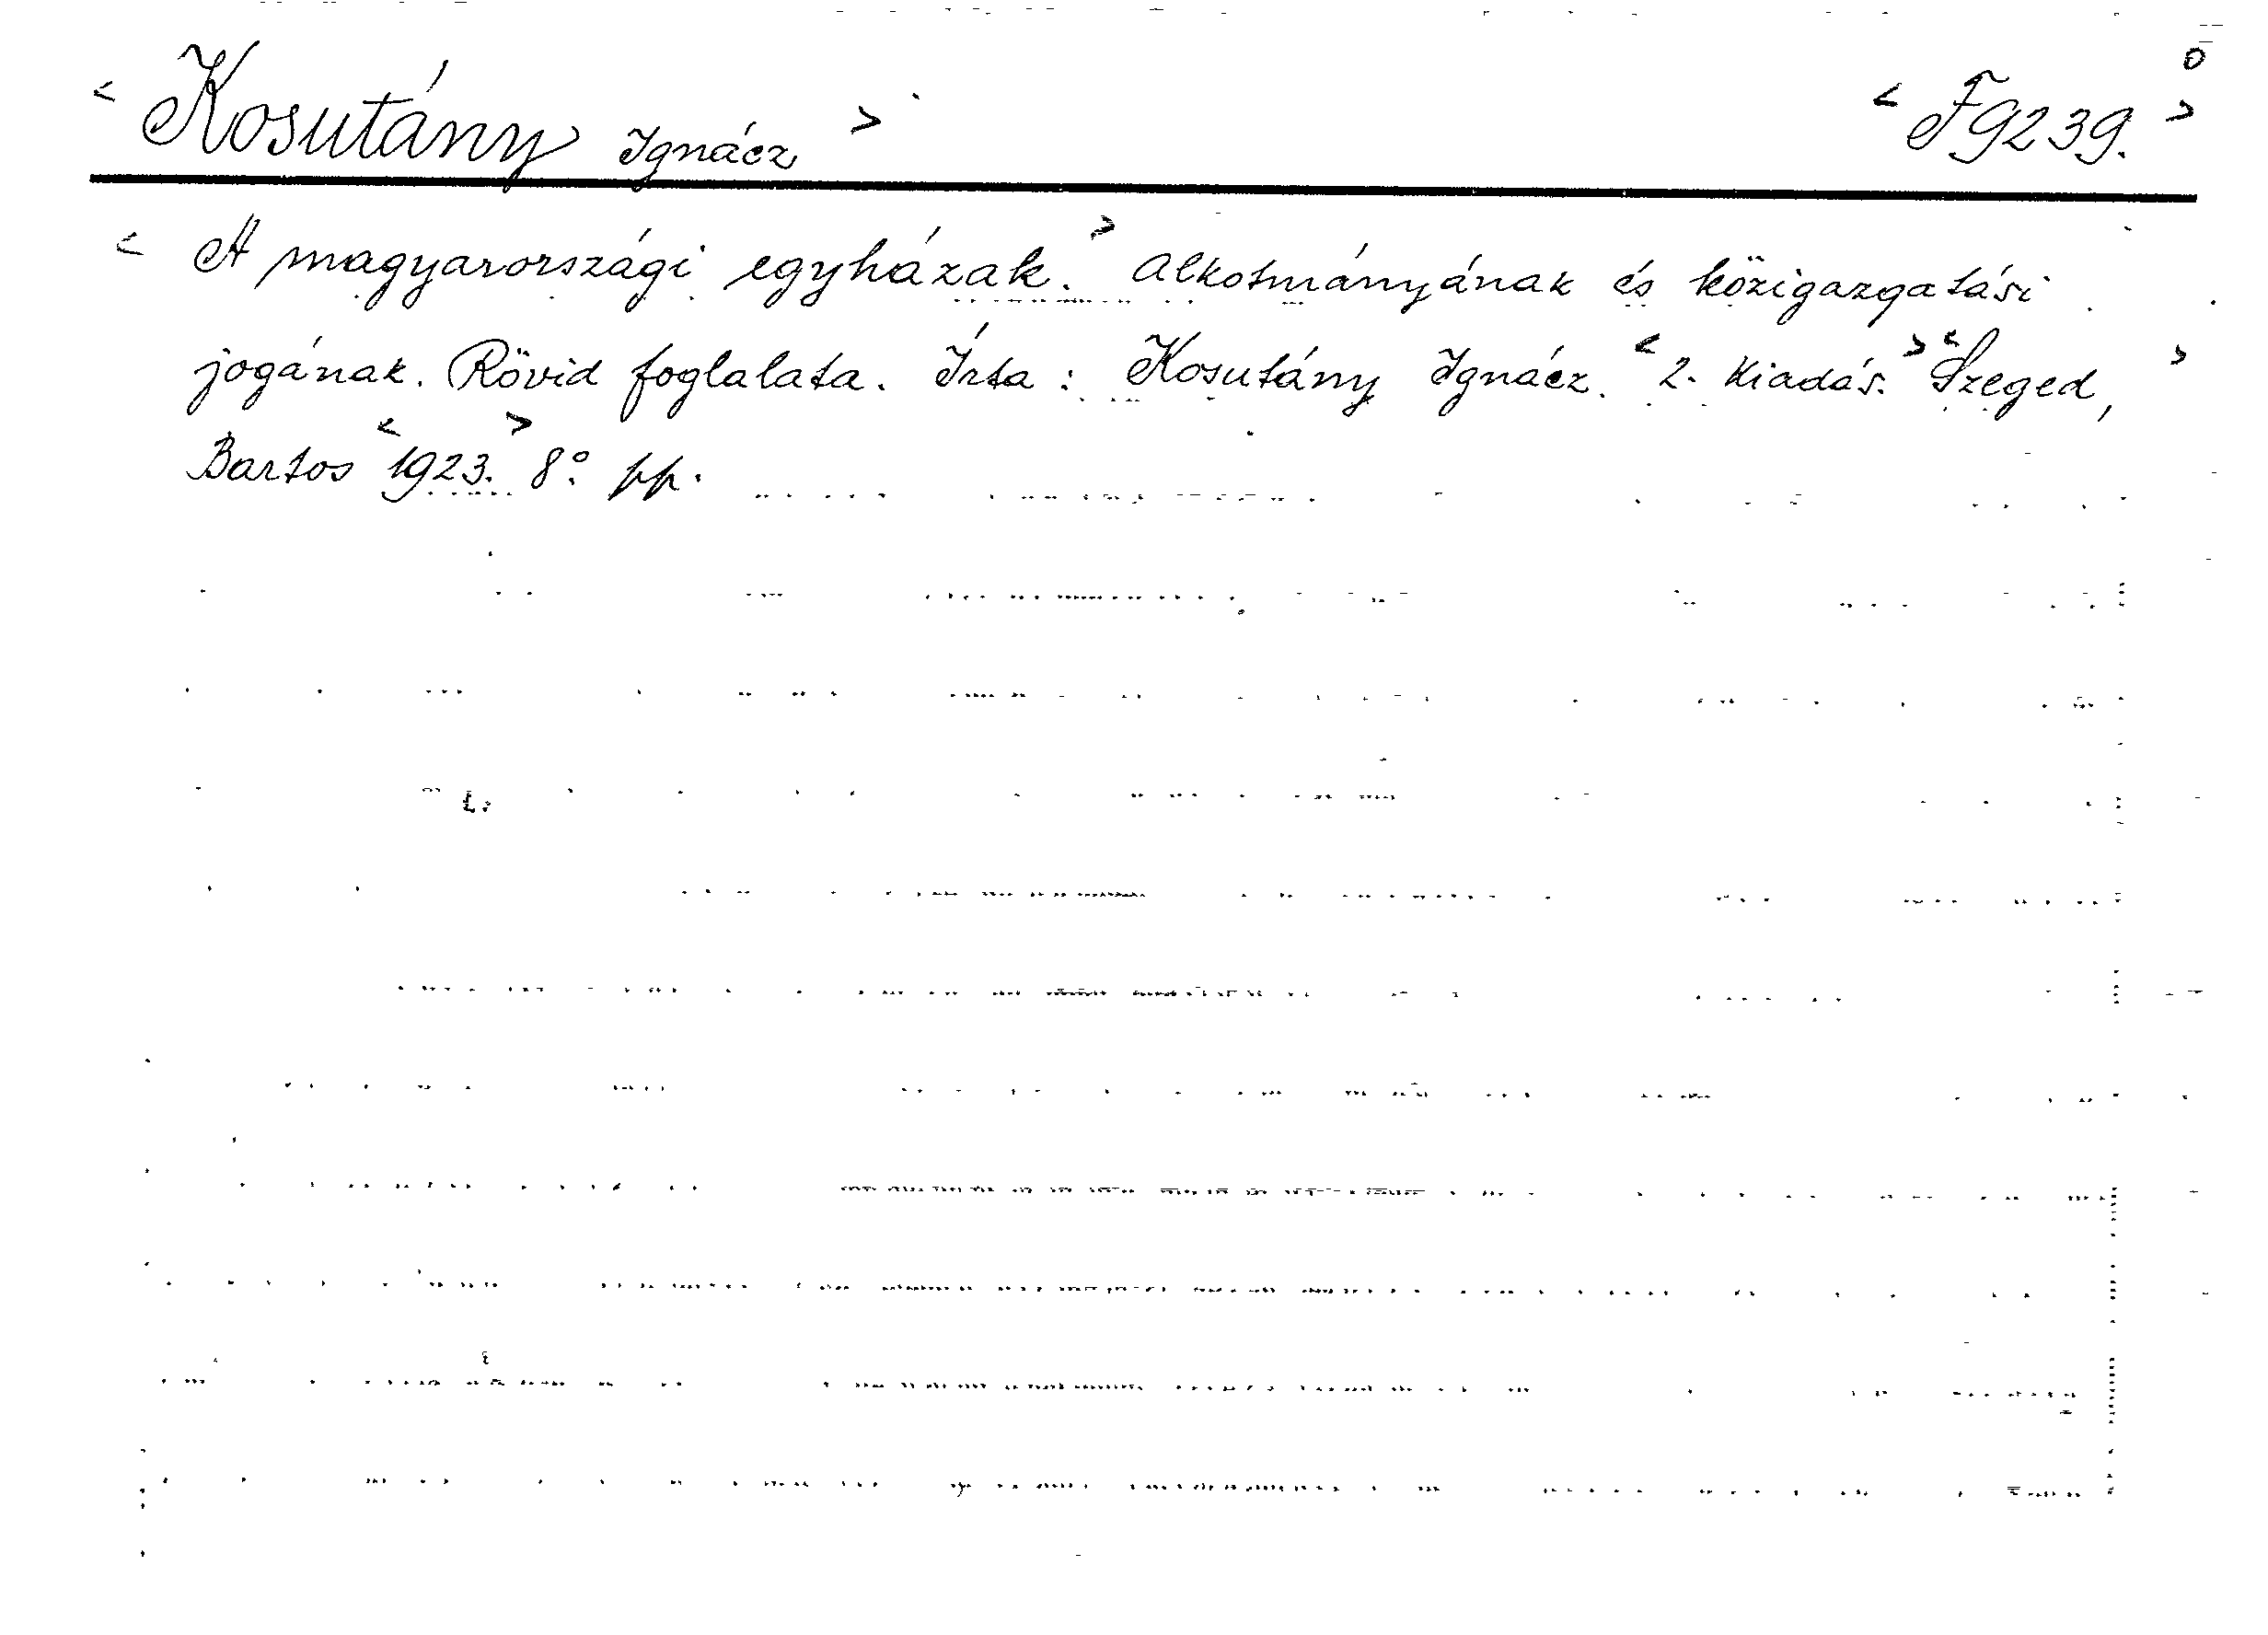 < Kosutány Ignácz > < F9239. >
< A magyarországi egyházak. > Alkotmányának és közigazgatási
jogának. Rövid foglalata. Írta : Kosutány Ignácz. < 2. Kiadás. > < Szeged, >
Bartos < 1923. > 8° pp.